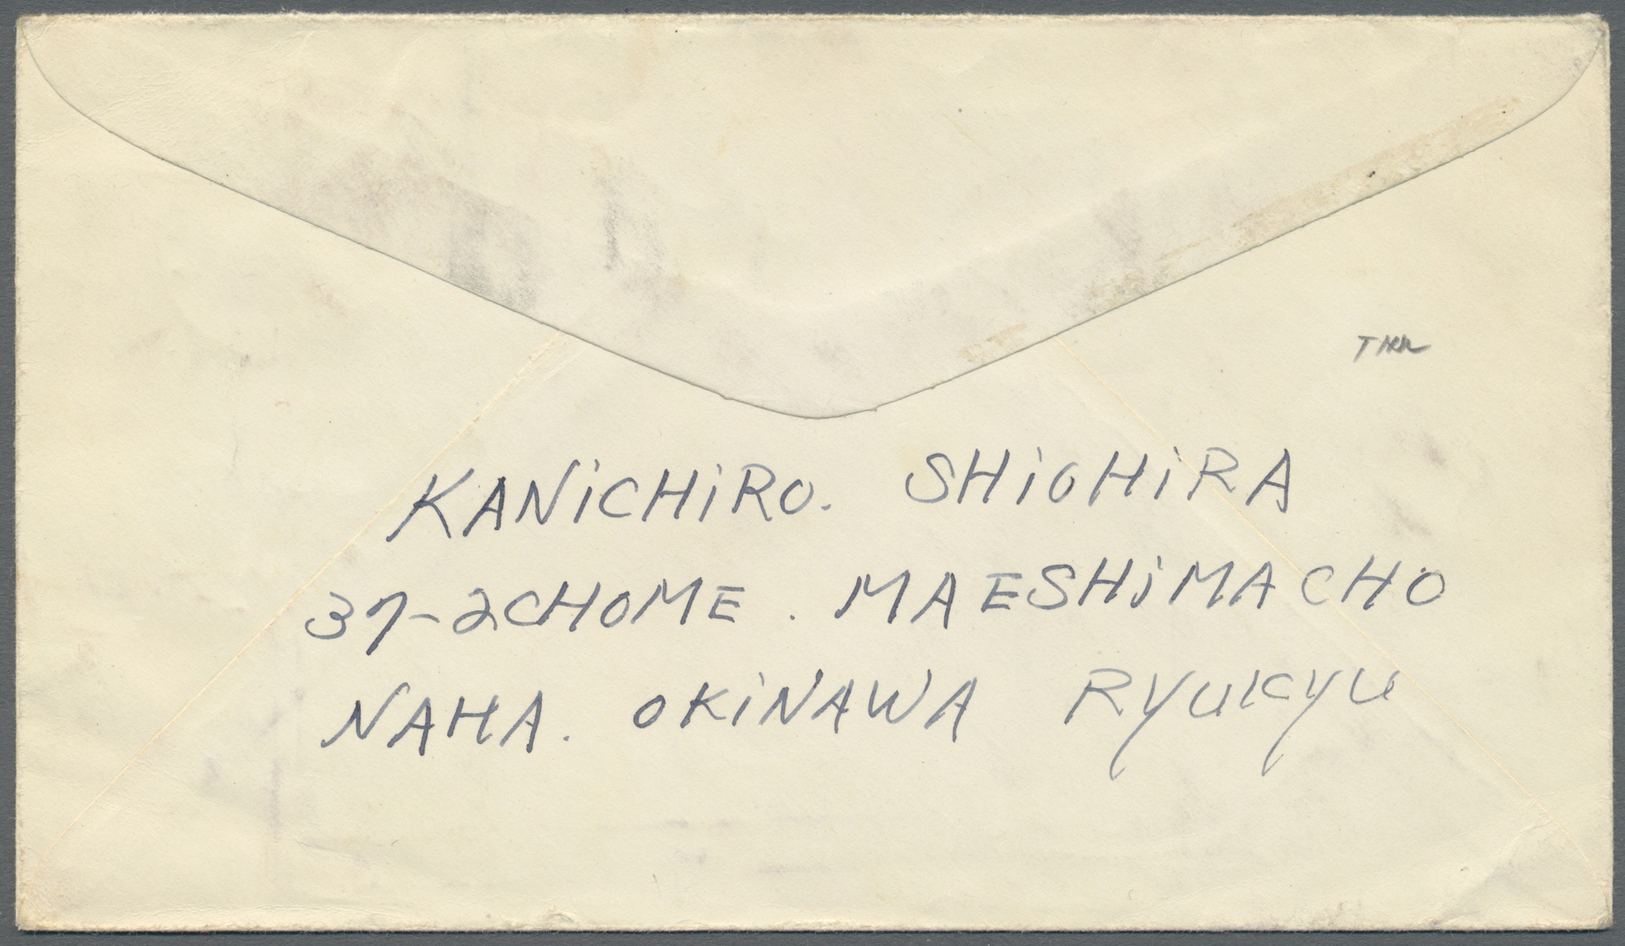 KANiCHiRO. SHiOHiRA
37-2CHOME. MAESHiMACHO
NAHA. OKiNAWA RyuKyu